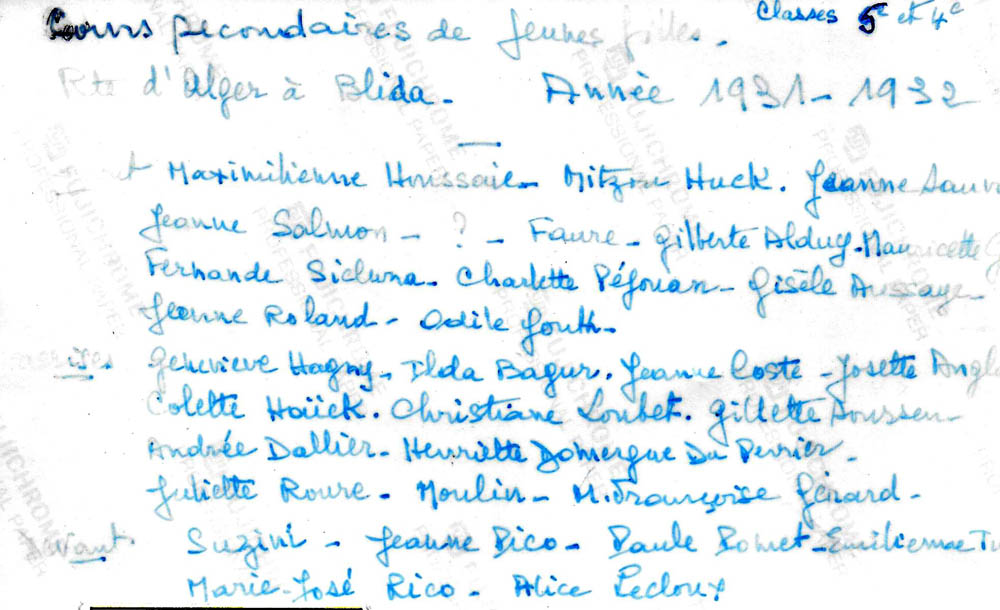 Classes 5e et 4e
Cours secondaires de jeunes filles.
Rte d'Alger à Blida - Année 1931-1932
Maximilienne Houssaie - Mitzou Huck. Jeanne
Jeanne Salmon - ? - Faure - Gilberte Alduy - Mauricette
Fernande Sicluna - Charlette Péjouan - Gisèle Aussaye -
Jeanne Roland - Odile Gouth -
Geneviève Hagny - Ilda Bagur. Jeanne Coste - Josette
Colette Haück. Christiane Loubet. Gillette
Andrée Dallier - Henriette Domergue Du Perrier -
Juliette Roure - Moulin - M. Françoise Gérard -
Suzini - Jeanne Bico - Paule Bonnet - Emilienne
Marie-José Rico - Alice Lecloux
FUJICHROME
PROFESSIONAL PAPER